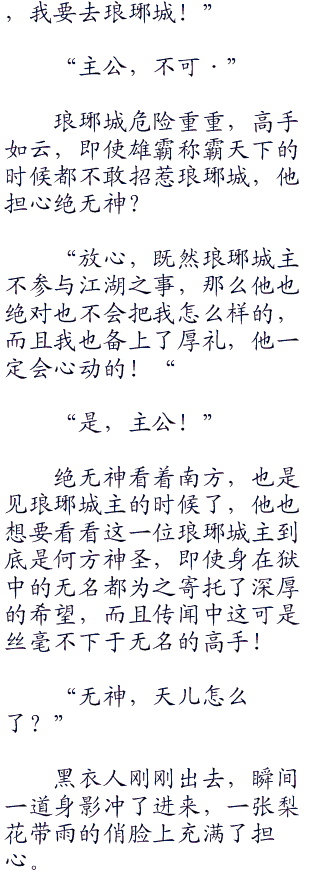 ，我要去琅琊城！”
“主公，不可·”
琅琊城危险重重，高手
如云，即使雄霸称霸天下的
时候都不敢招惹琅琊城，他
担心绝无神？
“放心，既然琅琊城主
不参与江湖之事，那么他也
绝对也不会把我怎么样的，
而且我也备上了厚礼，他一
定会心动的！“
“是，主公！”
绝无神看着南方，也是
见琅琊城主的时候了，他也
想要看看这一位琅琊城主到
底是何方神圣，即使身在狱
中的无名都为之寄托了深厚
的希望，而且传闻中这可是
丝毫不下于无名的高手！
“无神，天儿怎么
了？”
黑衣人刚刚出去，瞬间
一道身影冲了进来，一张梨
花带雨的俏脸上充满了担
心。